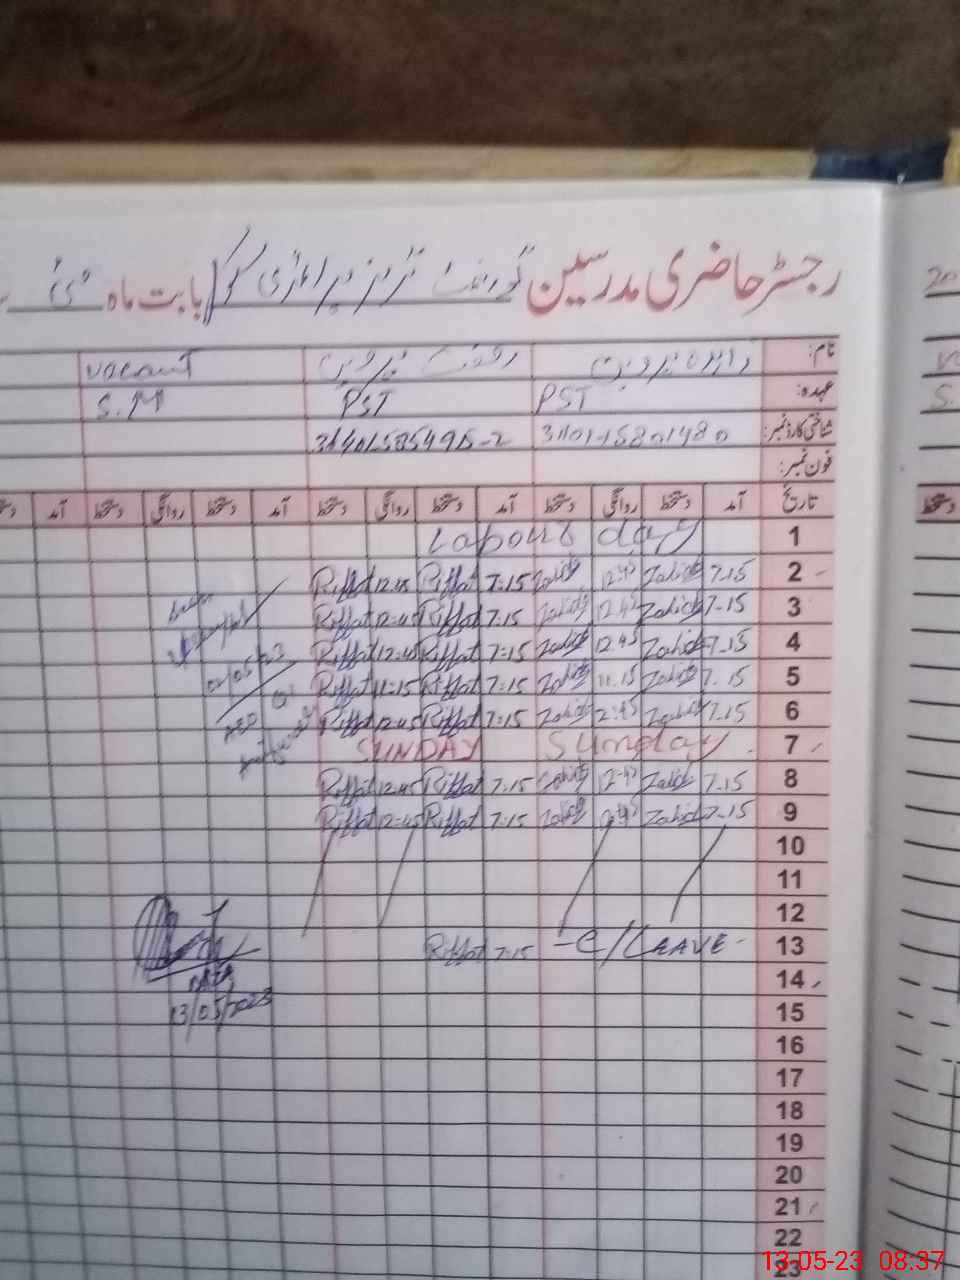 رجسٹر حاضری مدرسین گورنمنٹ بابت ماہ مئی
نام: زاہدہ پروین رفعت پروین vacant
عہدہ: PST PST S.M
شناختی کارڈ نمبر:
فون نمبر:
تاریخ آمد دستخط روانگی دستخط آمد دستخط روانگی دستخط آمد دستخط روانگی دستخط آمد دستخط
1 Labour day
2 7.15 Zahida 12:45 Zahida 7:15 Riffat 12:45 Riffat
3 7-15 Zahida 12.45 Zahida 7:15 Riffat 12:45 Riffat
4 7.15 Zahida 12.45 Zahida 7:15 Riffat 12:45 Riffat
5 7.15 Zahida 11.15 Zahida 7:15 Riffat 11:15 Riffat
6 7.15 Zahida 12:45 Zahida 7:15 Riffat 12:45 Riffat
7 Sunday SUNDAY
8 7-15 Zahida 12-45 Zahida 7:15 Riffat 12:45 Riffat
9 7-15 Zahida 12:45 Zahida 7:15 Riffat 12:45 Riffat
02/05/23
AEO
10
11
12
13 -C/LEAVE- 7:15 Riffat
13/05/2023
14
15
16
17
18
19
20
21
22
23
13-05-23 08:37